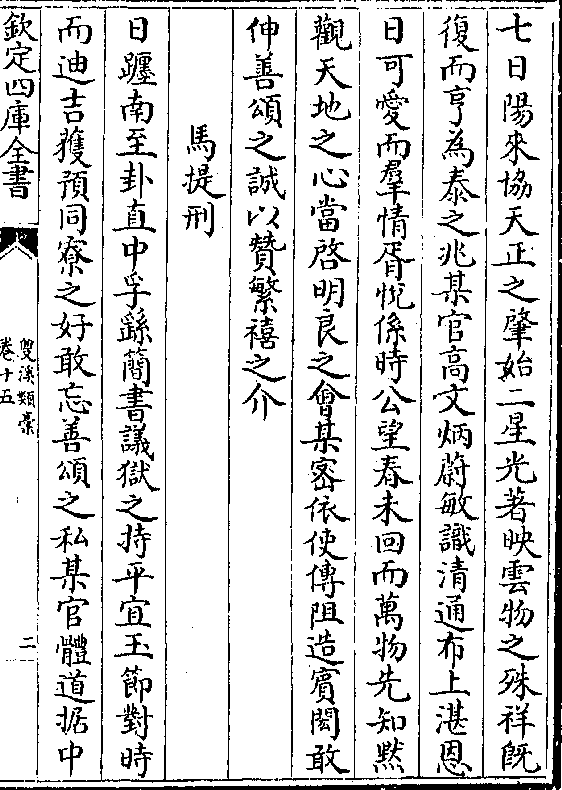 七日陽來協天正之肇始二星光著映雲物之殊祥旣
復而亨為泰之兆某官高文炳蔚敏識清通布上湛恩
日可愛而羣情胥悅係時公望春未回而萬物先知黙
觀天地之心當啓明良之會某密依使傳阻造賓閎敢
伸善頌之誠以贊繁禧之介
馬提刑
日躔南至卦直中孚繇簡書議獄之持平宜玉節對時
而迪吉獲預同寮之好敢忘善頌之私某官體道据中
欽定四庫全書
雙溪類稾
卷十五
二